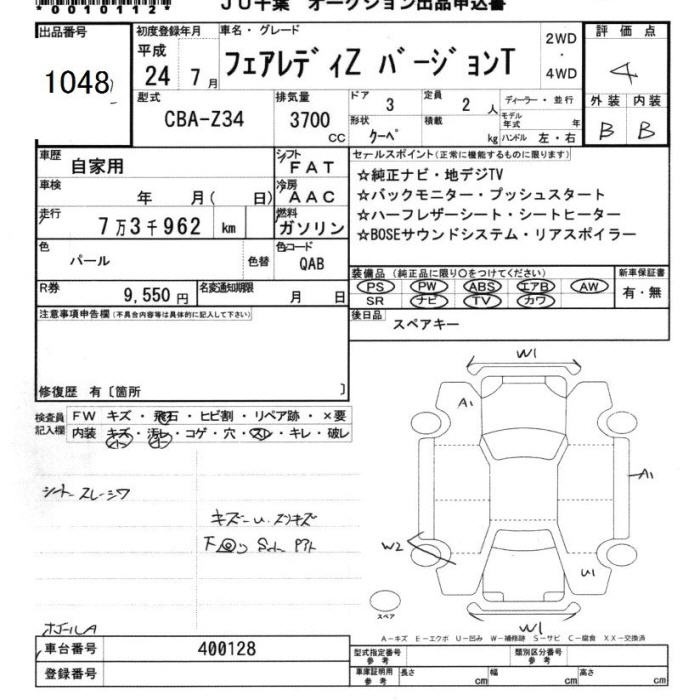 *0010112*
JU千葉 オークション出品申込書
出品番号
1048
初度登録年月
平成
24 7月
車名・グレード
フェアレディZ バージョンT
2WD
・
4WD
評価点
4
外装 内装
B B
型式
CBA-Z34
排気量
3700
CC
ドア
3
定員
2 人
形状
クーペ
積載
kg
ディーラー・並行
モデル年式 年
ハンドル 左・右
車歴
自家用
シフト
FAT
車検
年 月( 日)
冷房
AAC
走行
7万3千962 km
燃料
ガソリン
色
パール
色替
色コード
QAB
R券
9,550円
名変通知期限
月 日
セールスポイント(正常に機能するものに限ります)
☆純正ナビ・地デジTV
☆バックモニター・プッシュスタート
☆ハーフレザーシート・シートヒーター
☆BOSEサウンドシステム・リアスポイラー
装備品 (純正品に限り○をつけてください)
PS PW ABS エアB AW
SR ナビ TV カワ
新車保証書
有・無
後日品
スペアキー
注意事項申告欄(不具合内容等は具体的に記入して下さい)
修復歴 有〔箇所 〕
検査員記入欄
FW キズ・飛石・ヒビ割・リペア跡・×要
内装 キズ・汚レ・コゲ・穴・スレ・キレ・破レ
シートスレシワ
W1
A1
A1
W2
U1
W1
スペア
A-キズ E-エクボ U-凹み W-補修跡 S-サビ C-腐食 XX-交換済
車台番号
400128
登録番号
型式指定番号
参考
類別区分番号
参考
車庫証明用
参考
長さ cm
幅 cm
高さ cm